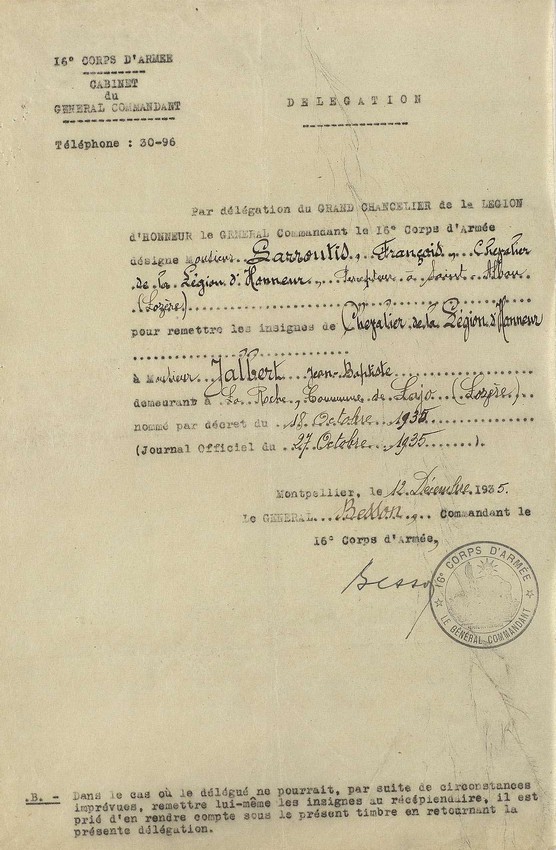 16° CORPS D'ARMEE
CABINET
du
GENERAL COMMANDANT
Téléphone : 30-96
DELEGATION
Par délégation du GRAND CHANCELIER de la LEGION
d'HONNEUR le GENERAL Commandant le 16° Corps d'Armée
désigne Monsieur Garroutis, François, Chevalier
de la Légion d'Honneur, Percepteur à Saint Alban
(Lozère)
pour remettre les insignes de Chevalier de la Légion d'Honneur
à Monsieur Jalbert Jean-Baptiste
demeurant à La Roche, Commune de Lajo (Lozère)
nommé par décret du 18 Octobre 1935
(Journal Officiel du 27 Octobre 1935).
Montpellier, le 12 Décembre 1935.
Le GENERAL Besson, Commandant le
16° Corps d'Armée,
Besson
16° CORPS D'ARMÉE
LE GÉNÉRAL COMMANDANT
.B. - Dans le cas où le délégué ne pourrait, par suite de circonstances
imprévues, remettre lui-même les insignes au récépiendaire, il est
prié d'en rendre compte sous le présent timbre en retournant la
présente délégation.